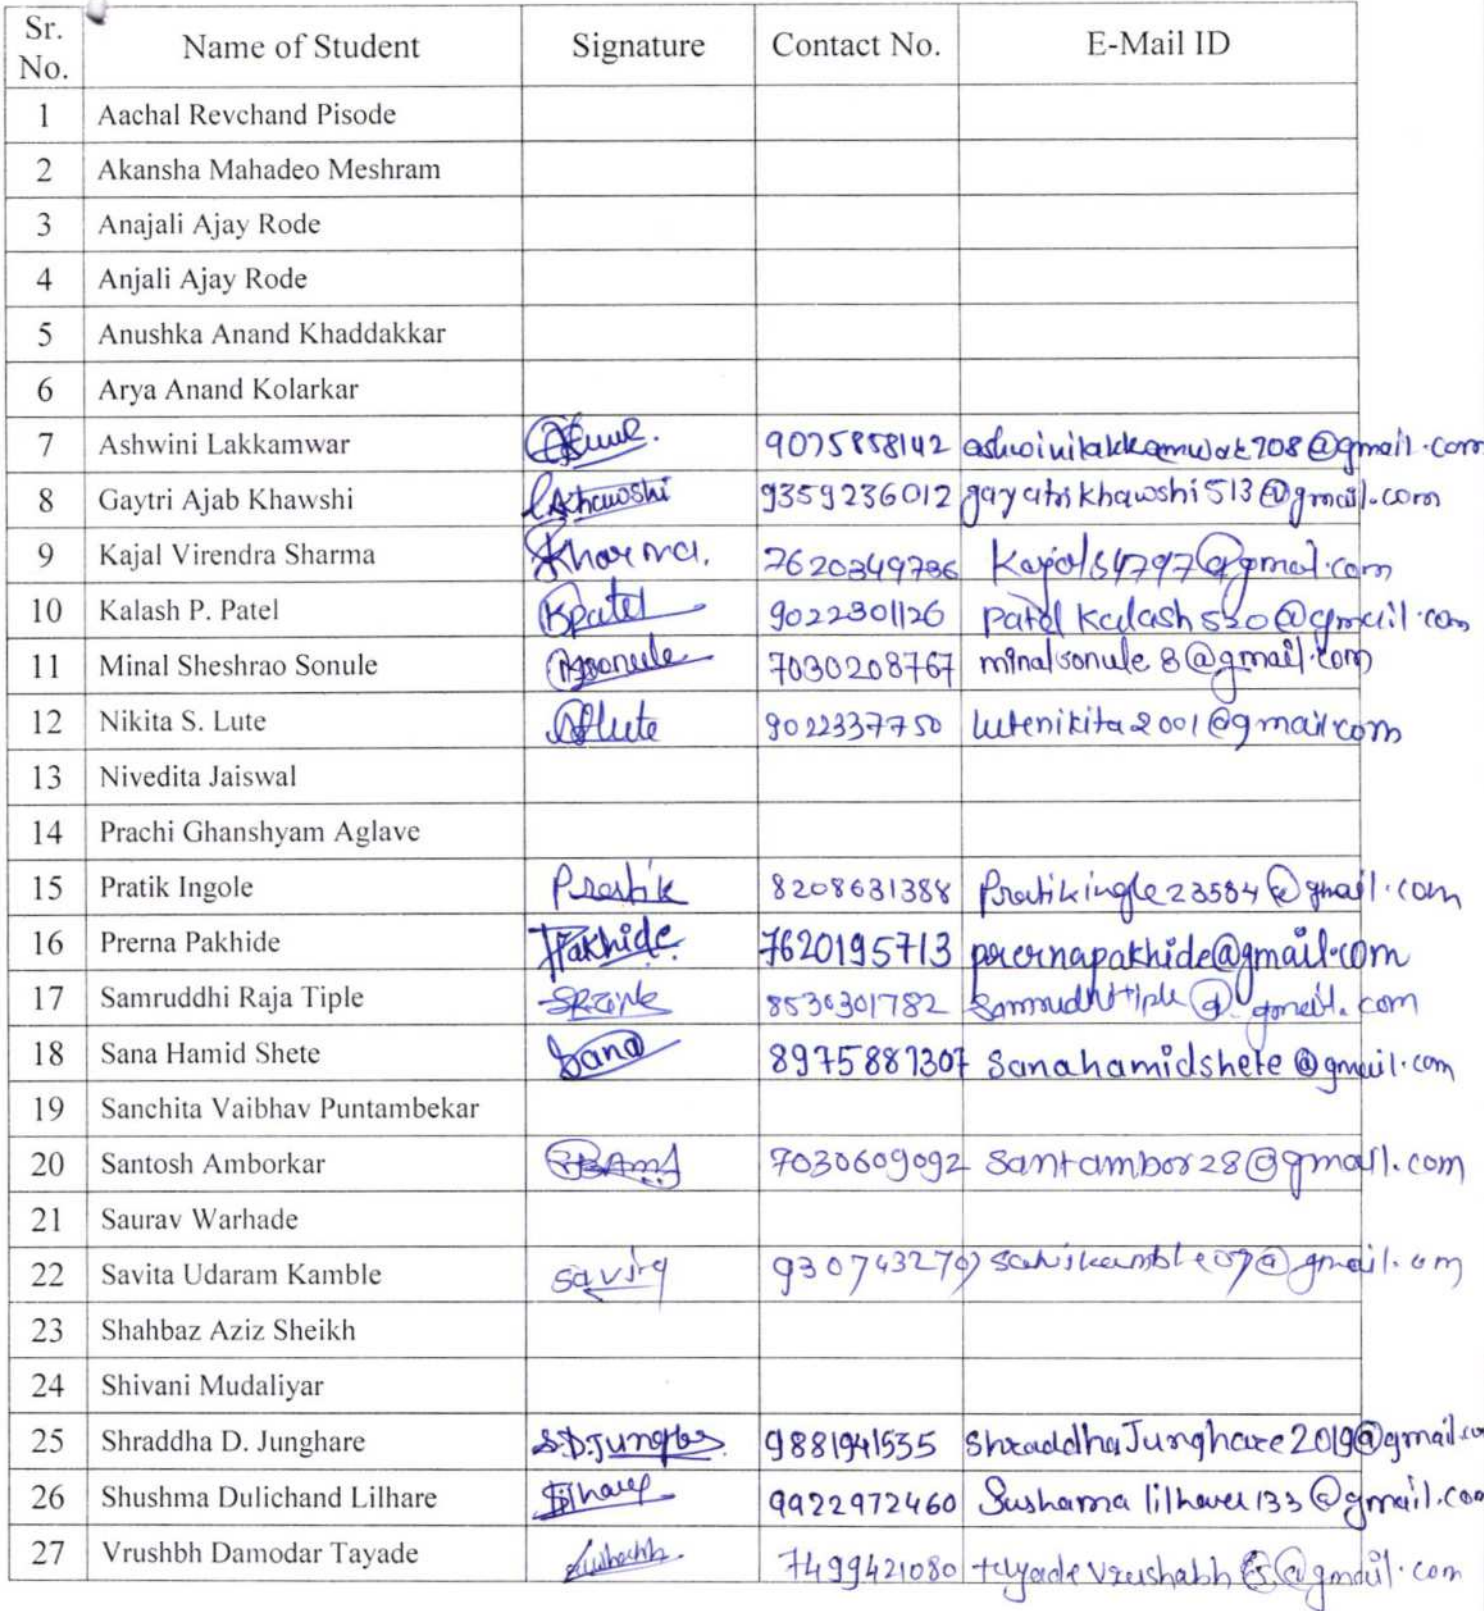 Sr. No. Name of Student Signature Contact No. E-Mail ID
1 Aachal Revchand Pisode
2 Akansha Mahadeo Meshram
3 Anajali Ajay Rode
4 Anjali Ajay Rode
5 Anushka Anand Khaddakkar
6 Arya Anand Kolarkar
7 Ashwini Lakkamwar 9075858142 ashwinilakkamwar708@gmail.com
8 Gaytri Ajab Khawshi Khawshi 9359236012 gayatrikhawshi513@gmail.com
9 Kajal Virendra Sharma Sharma. 7620349736
10 Kalash P. Patel KPatel 9022301126 patel kalash520@gmail.com
11 Minal Sheshrao Sonule Msonule 7030208767 minalsonule8@gmail.com
12 Nikita S. Lute Lute 9022337750 lutenikita2001@gmail.com
13 Nivedita Jaiswal
14 Prachi Ghanshyam Aglave
15 Pratik Ingole Pratik 8208631388 Pratikingle23584@gmail.com
16 Prerna Pakhide Pakhide 7620195713 prernapakhide@gmail.com
17 Samruddhi Raja Tiple 8530301782
18 Sana Hamid Shete Sana 8975887307 Sanahamidshete@gmail.com
19 Sanchita Vaibhav Puntambekar
20 Santosh Amborkar 7030609092 santambor28@gmail.com
21 Saurav Warhade
22 Savita Udaram Kamble Savita
23 Shahbaz Aziz Sheikh
24 Shivani Mudaliyar
25 Shraddha D. Junghare S.D.Junghare 9881941535 ShraddhaJunghare2019@gmail.co
26 Shushma Dulichand Lilhare 9922972460
27 Vrushbh Damodar Tayade 7499421080